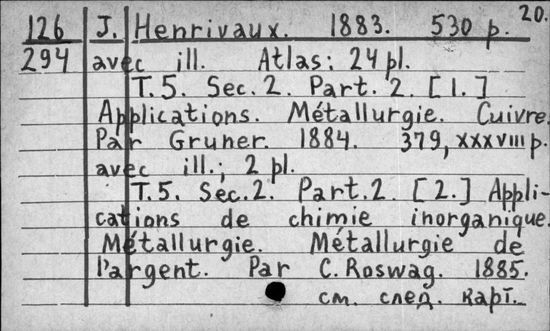 20.
126 J. Henrivaux. 1883. 530 p.
294 avec ill. Atlas: 24 pl.
T. 5. Sec. 2. Part. 2. [1.]
Applications. Métallurgie. Cuivre.
Par Gruner. 1884. 379, XXXVIII p.
avec ill.; 2 pl.
T. 5. Sec. 2. Part. 2. [2.] Appli-
cations de chimie inorganique.
Métallurgie. Métallurgie de
l'argent. Par C. Roswag. 1885.
см. след. карт.